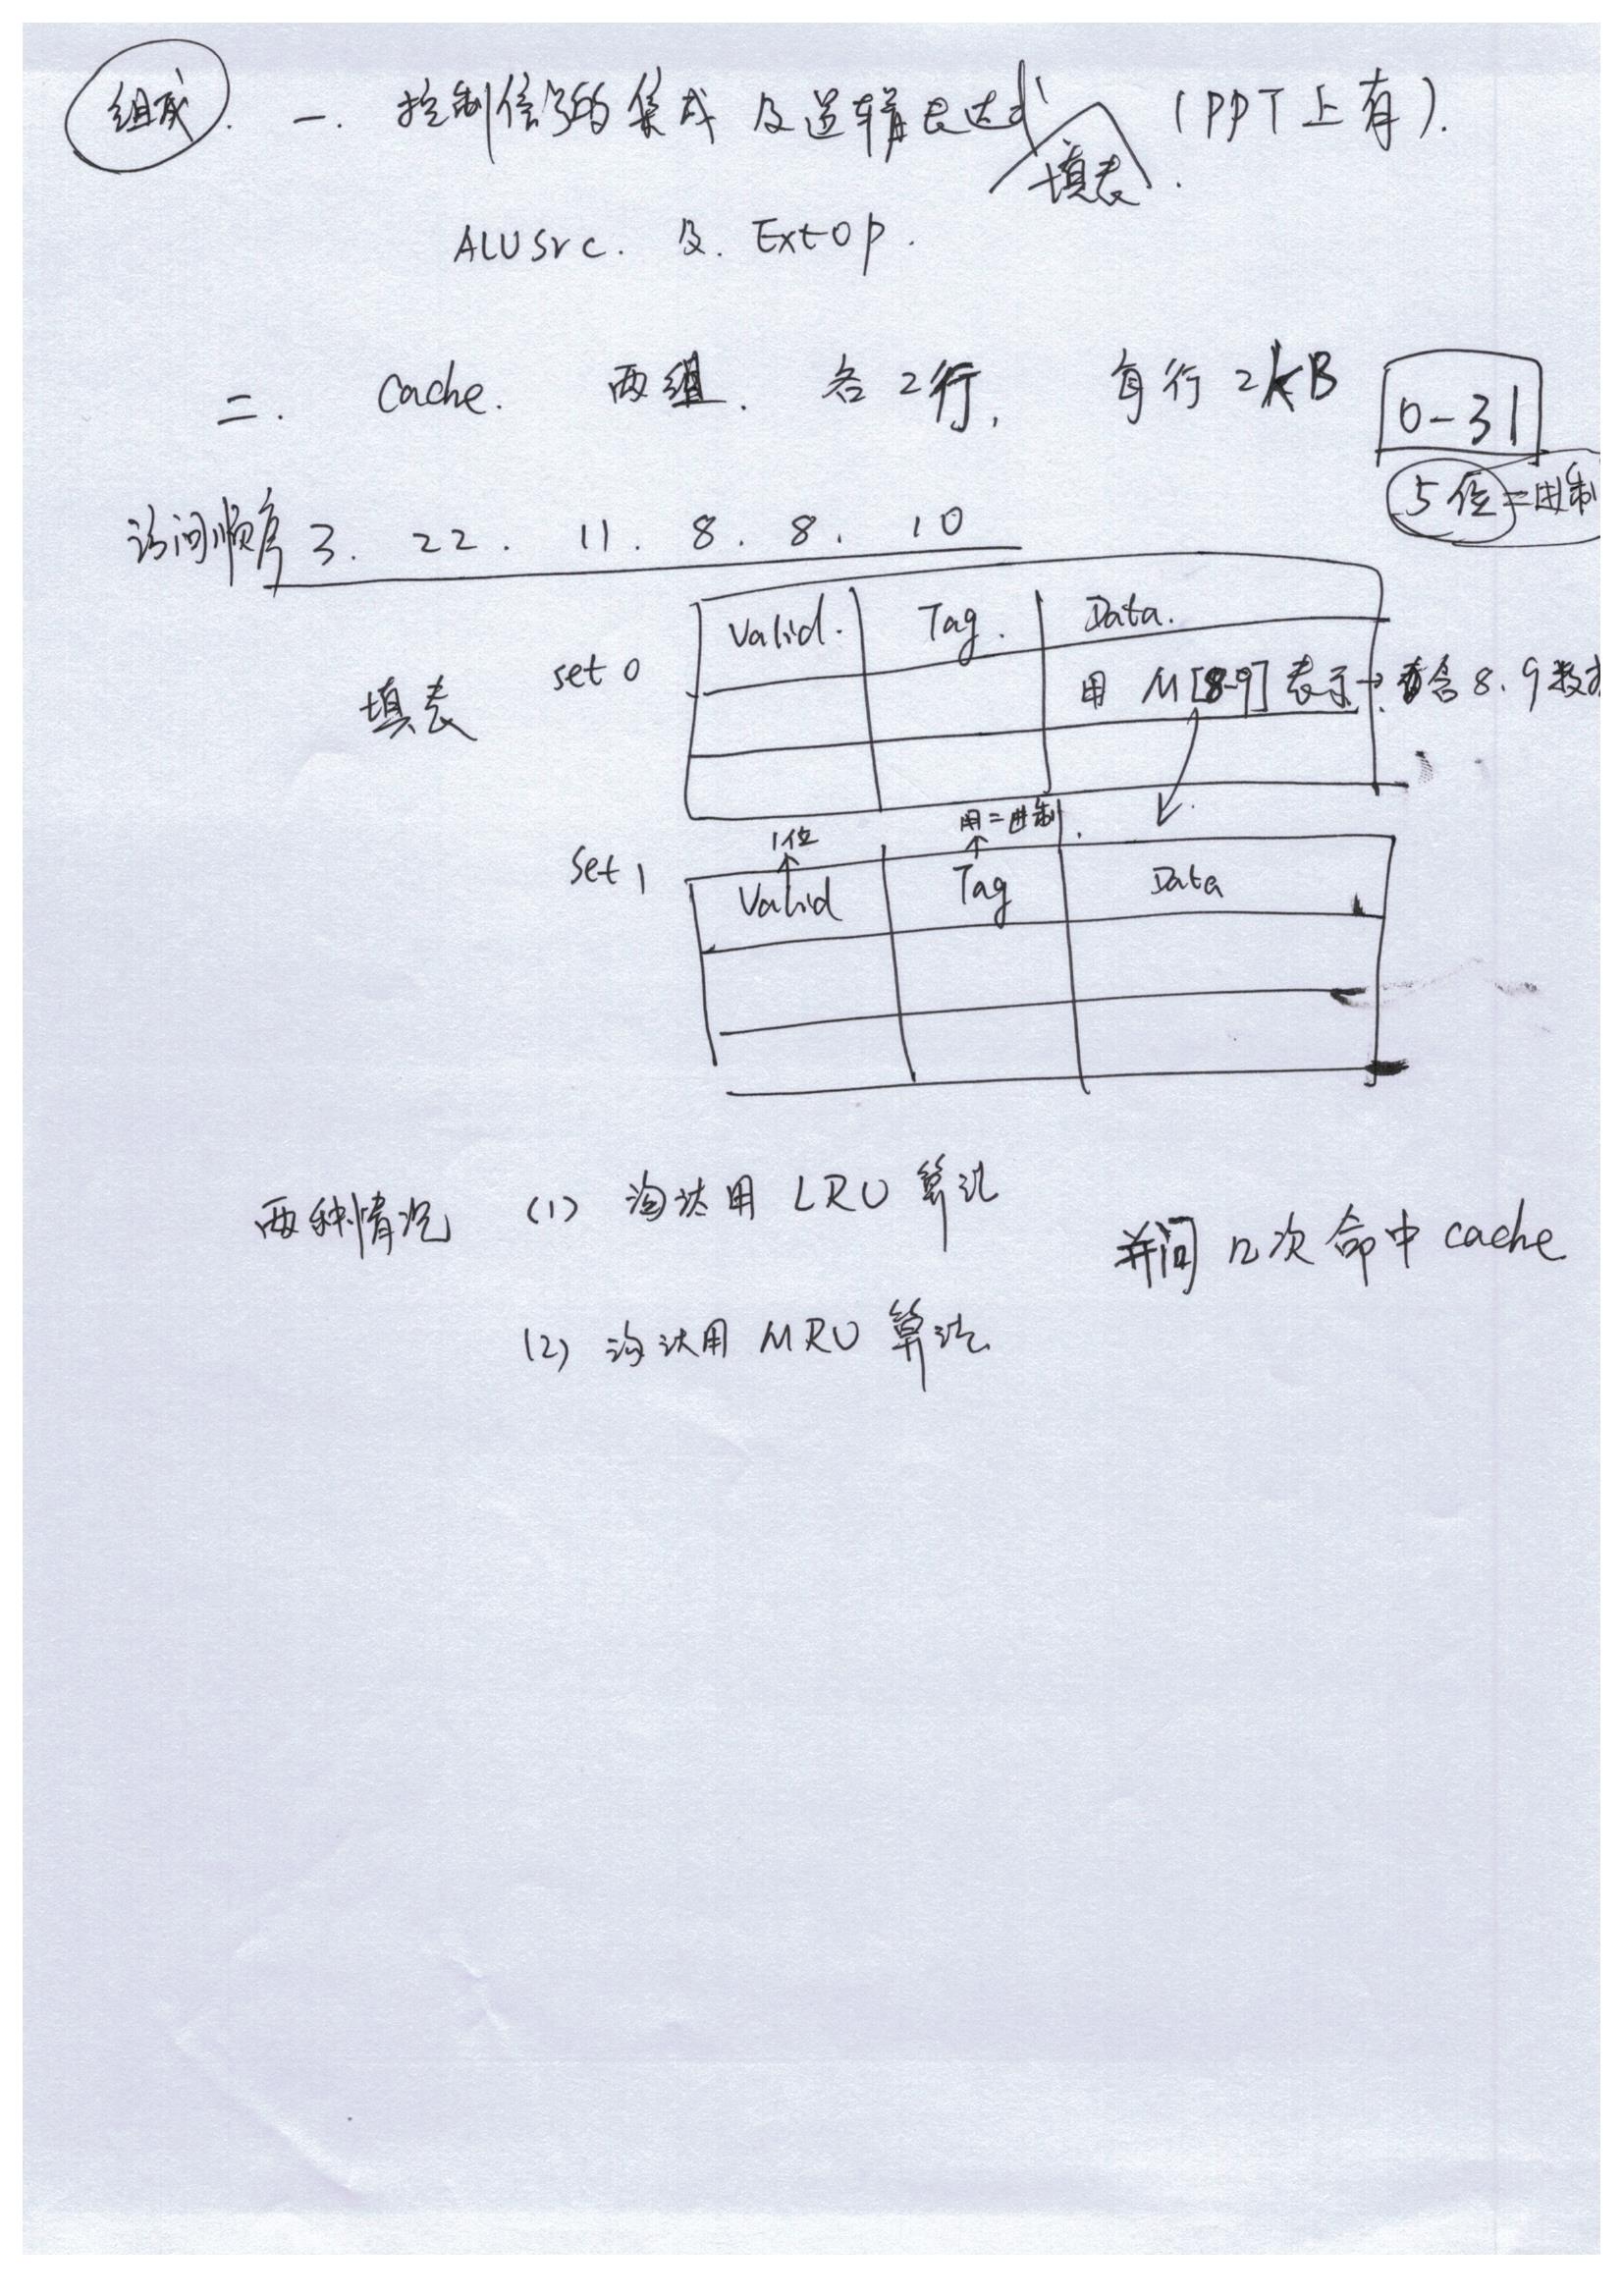 组成. 一. 控制信号的集成 及逻辑表达式 (PPT上有).
填表.
ALUSrc. 及. ExtOp.
二. Cache. 两组. 各2行, 每行2kB 0-31
5位二进制
访问顺序 3. 22. 11. 8. 8. 10
填表 set 0
Valid. Tag. Data.
用 M[8-9] 表示→ 含8.9数
1位 用二进制.
Set 1
Valid Tag Data
两种情况 (1) 淘汰用 LRU 算法
并问 几次命中 cache
(2) 淘汰用 MRU 算法